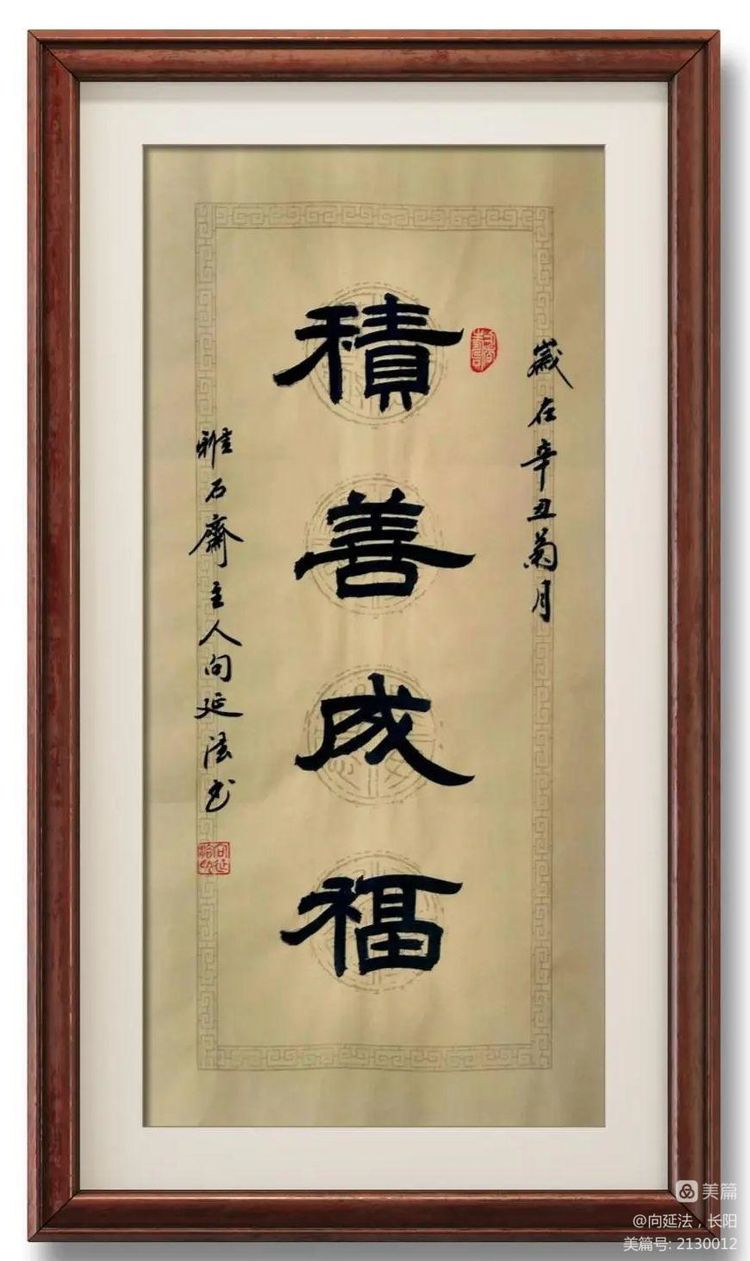 歲在辛丑菊月
積善成福
雅石齋主人向延法书
美篇
@向延法，长阳
美篇号: 2130012